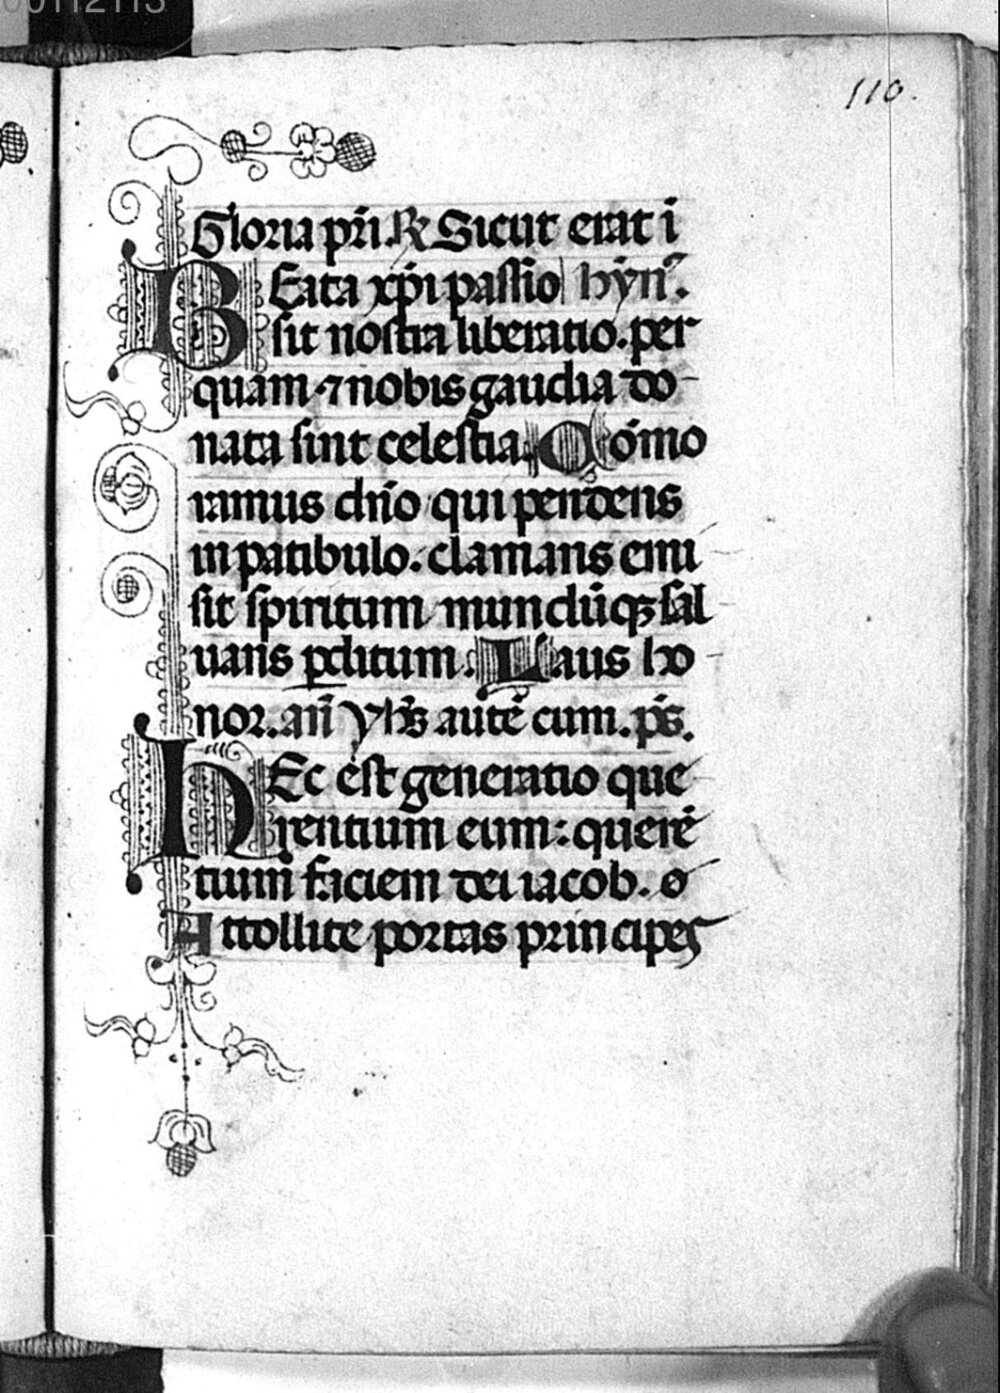 00112113
110.
Gloria pr̄i. ℟ Sicut erat ī
BEata xp̄i passio hȳn⁹.
sit nostra liberatio. per
quam ⁊ nobis gaudia do
nata sint celestia. Qōmo
ramus chr̄o qui pendens
in patibulo. clamans emi
sit spiritum mundūqꝫ sal
uans ꝑditum. Laus ho
nor. an̄ yh̄s autē cum. pˢ.
HEc est generatio que
rentium eum: querē
tium faciem dei iacob. o
Attollite portas principes